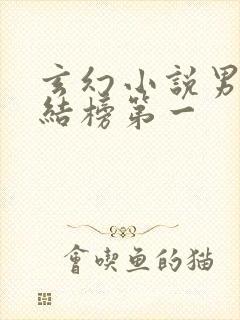 玄幻小説男
結榜第一
會喫魚的猫